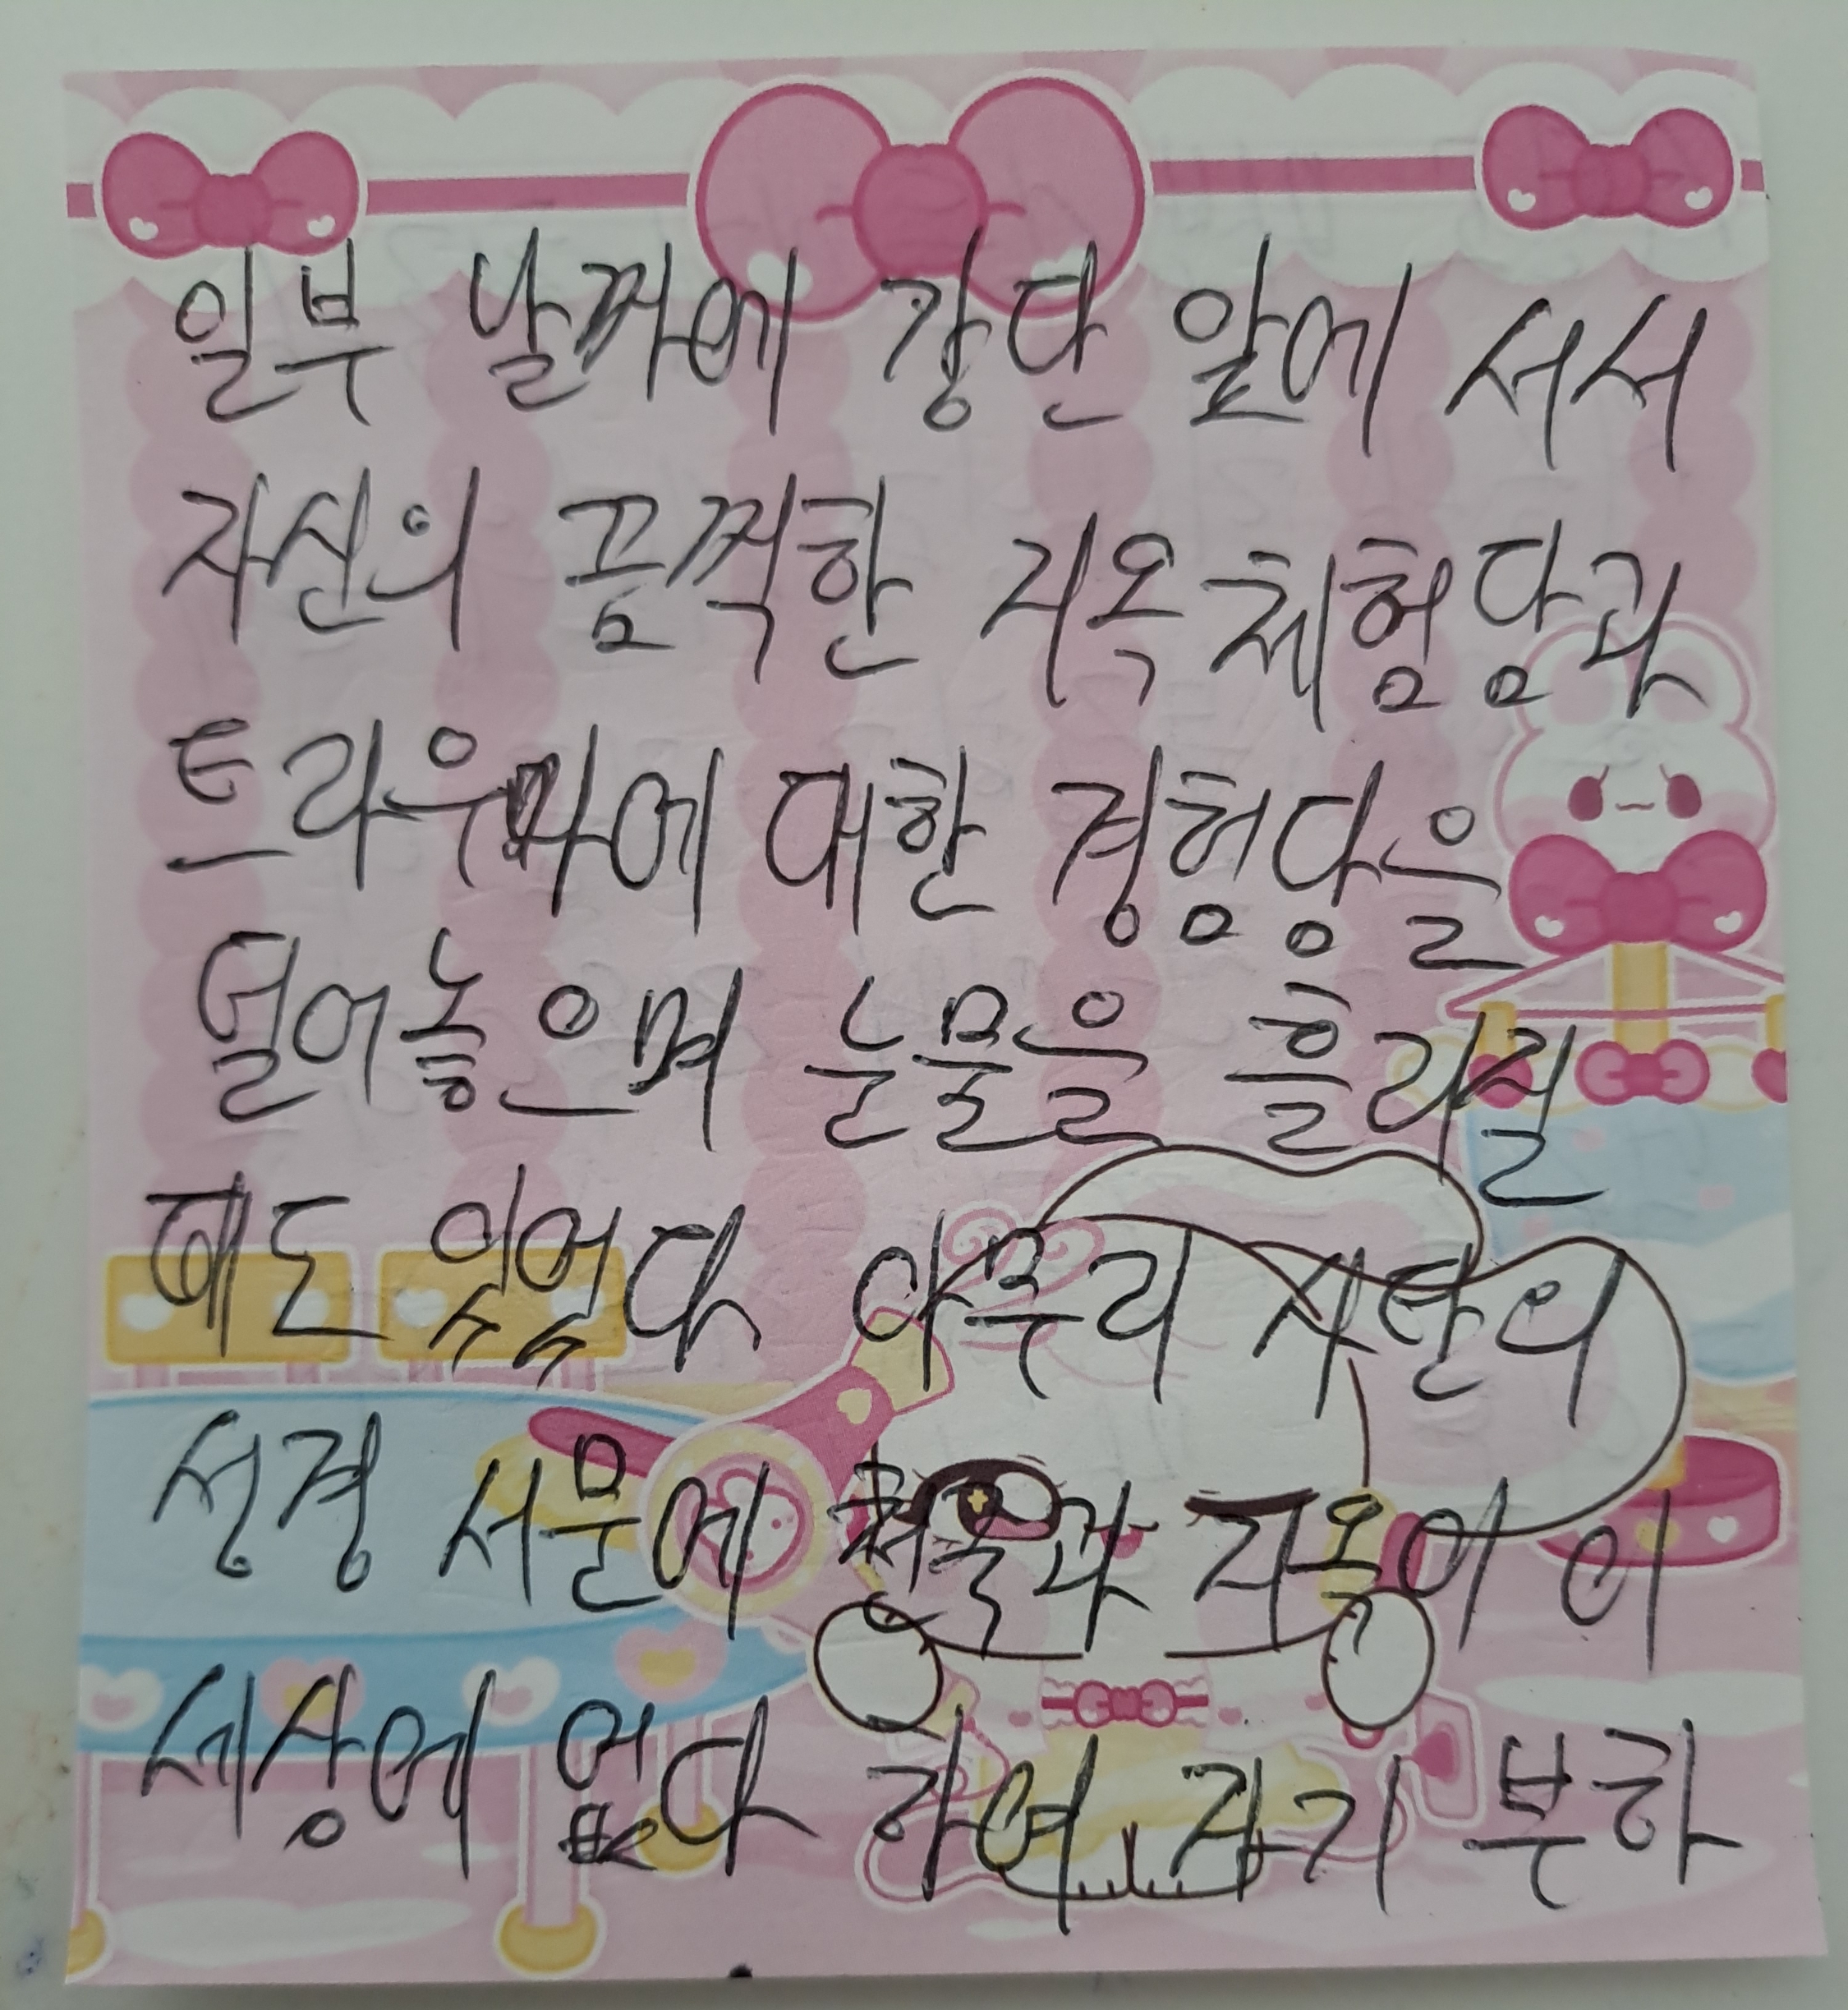 일부 날짜에 강단 앞에 서서
자신의 끔찍한 지옥 체험담과
트라우마에 대한 경험담을
털어놓으며 눈물을 흘리질
때도 있었다 아무리 사탄의
성경 서문에 천국과 지옥이 이
세상에 없다 라며 자기 부하